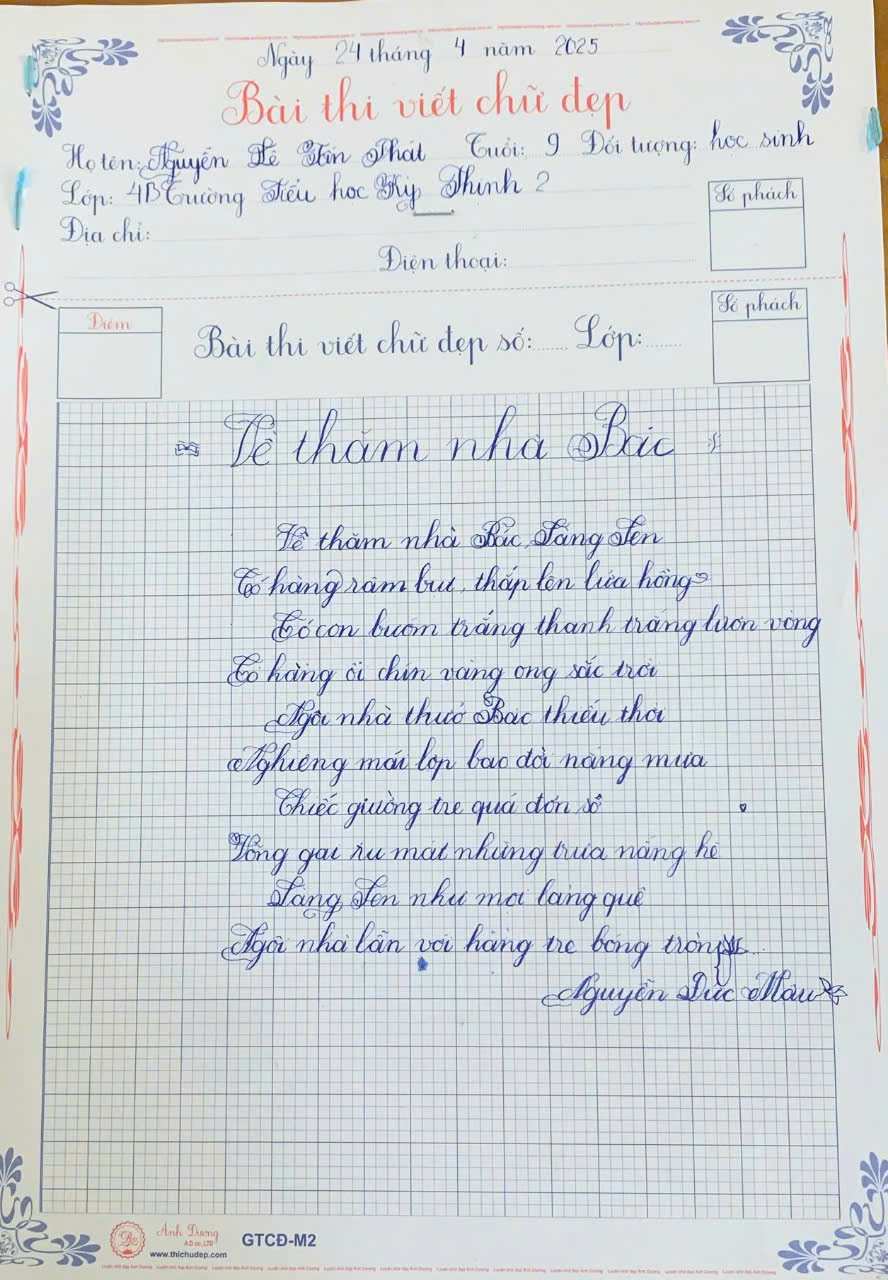 Ngày 24 tháng 4 năm 2025
Bài thi viết chữ đẹp
Họ tên: Nguyễn Lê Tấn Phát Tuổi: 9 Đối tượng: học sinh
Lớp: 4B Trường Tiểu học Kỳ Thịnh 2
Địa chỉ:
Số phách
Điện thoại:
Điểm
Bài thi viết chữ đẹp số:...... Lớp:.......
Số phách
Về thăm nhà Bác
Về thăm nhà Bác, Làng Sen
Có hàng râm bụt, thắp lên lửa hồng
Có con bướm trắng thanh trăng lượn vòng
Có hàng ổi chín vàng ong sắc trời
Ngôi nhà thuở Bác thiếu thời
Nghiêng mái lợp bao đời nắng mưa
Chiếc giường tre quá đơn sơ
Võng gai ru mát những trưa nắng hè
Làng Sen như mọi làng quê
Ngôi nhà lẫn với hàng tre bóng tròn
Nguyễn Đức Mậu
Ánh Dương
A.D co.,LTD
www.thichudep.com
GTCĐ-M2